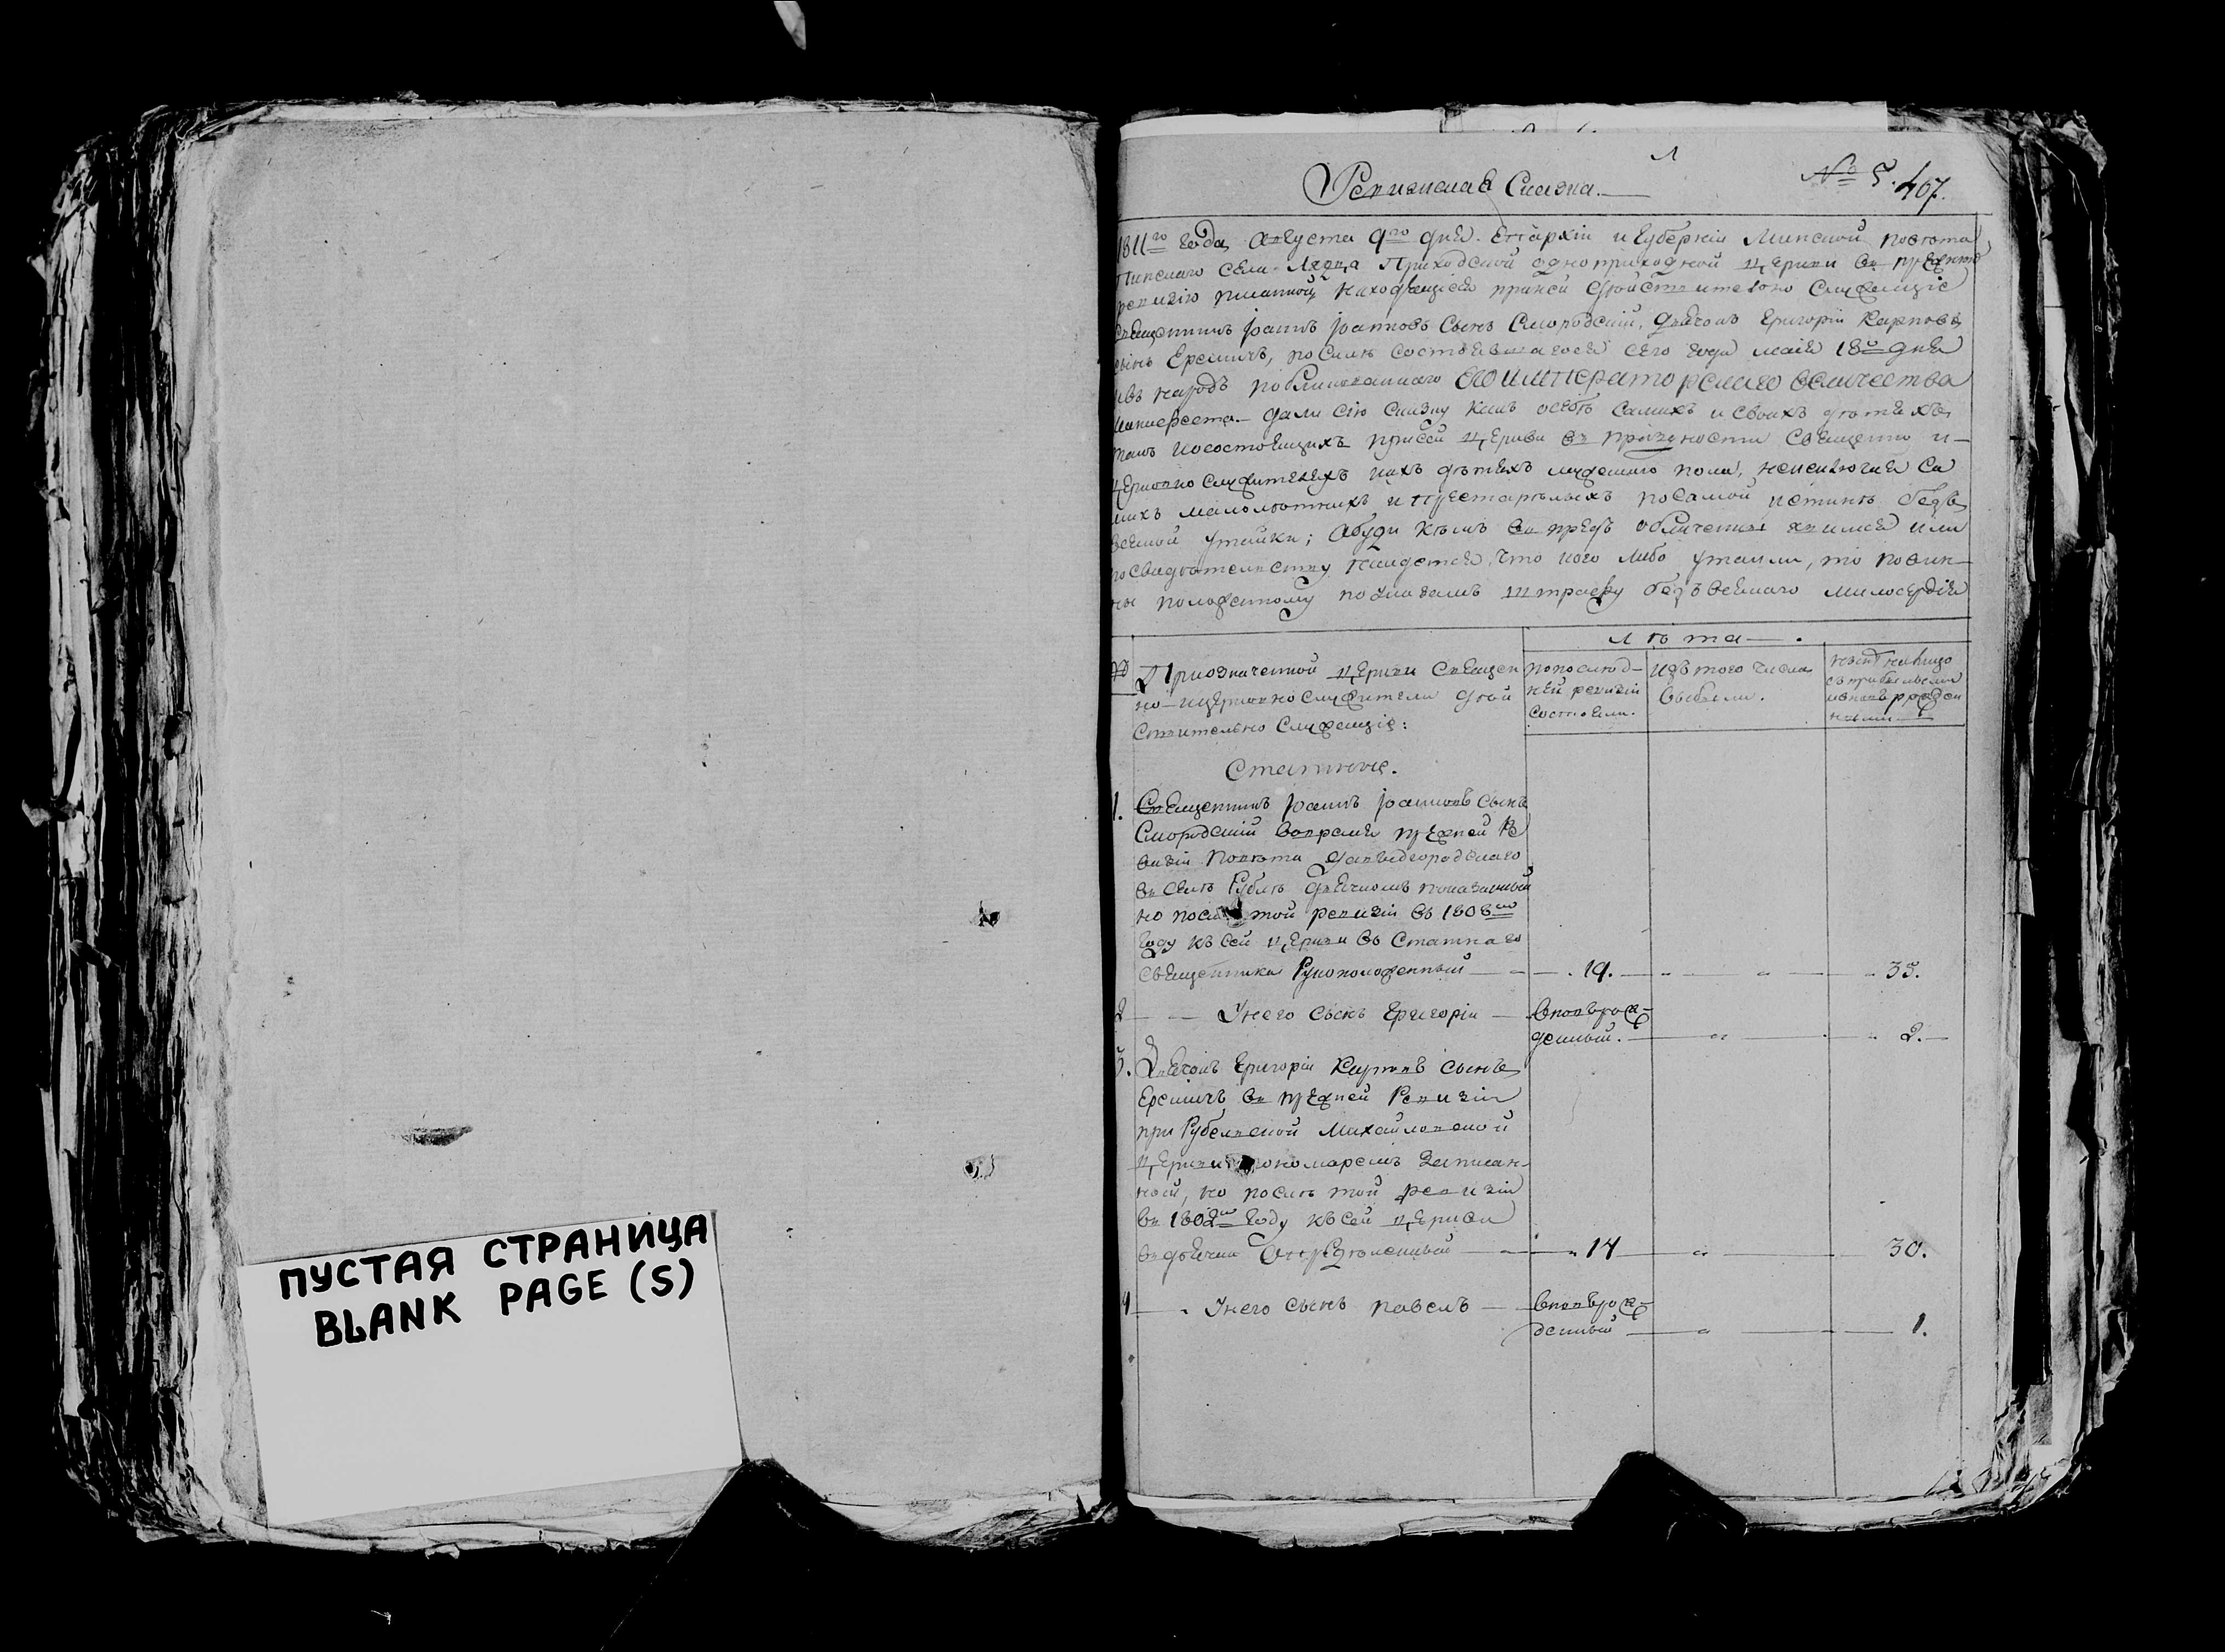 ПУСТАЯ СТРАНИЦА
BLANK PAGE (S)
Ревизская Сказка.
№ 5. 467.
1811го года Августа 9го дня. Епархіи и Губерніи Минской повѣта
Пинскаго села Приходской одноприходной церкви въ прежнюю
ревизію писанной находящіеся при ней дѣйствительно служащіе
Священникъ Іоаннъ Іоанновъ сынъ Смородскій, дьячокъ Григорій Карповъ
сынъ Еремичъ, по силѣ состоявшагося сего года маія 18го дня
и въ народъ публикованнаго ЕГО ИМПЕРАТОРСКАГО величества
Манифеста дали сію сказку какъ о себѣ самихъ и своихъ дѣтяхъ
такъ и о состоящихъ при сей церкви въ праздности священно и
церковно служителяхъ и ихъ дѣтяхъ мужескаго пола, не исключая са
мыхъ малолѣтнихъ и престарѣлыхъ по самой истинѣ безъ
всякой утайки; а буди кѣмъ въ предъ обличены явимся или
по свидѣтельству найдется, что кого либо утаили, то повин
ны положенному по законамъ штрафу безъ всякаго милосердія
Лѣта.
При означенной церкви священ
но-и церковно служители дѣй
ствительно служащіе:
по послѣд-
ней ревизіи
состояли.
изъ того числа
выбыли.
нынѣ на лицо
съ прибылыми
и вновь рожден
ными
Статные.
1. Священникъ Іоаннъ Іоанновъ сынъ
Смородскій во время прежней Ре
визіи повѣта Давидгородскаго
въ селѣ Рублѣ дьячкомъ показанный
но послѣ той ревизіи въ 1808мъ
году къ сей церкви въ статнаго
священника Рукоположенный 19. 35.
2 У него сынъ Григорій вновь рож-
денный. 2.
3. Дьячокъ Григорій Карповъ сынъ
Еремичъ въ прежней Ревизіи
при Рубельской Михайловской
церкви пономаремъ записан-
ной, но послѣ той ревизіи
въ 1802мъ году къ сей церкви
въ дьячки опредѣленный 14 30.
4 У него сынъ Павелъ вновь рож-
денный 1.